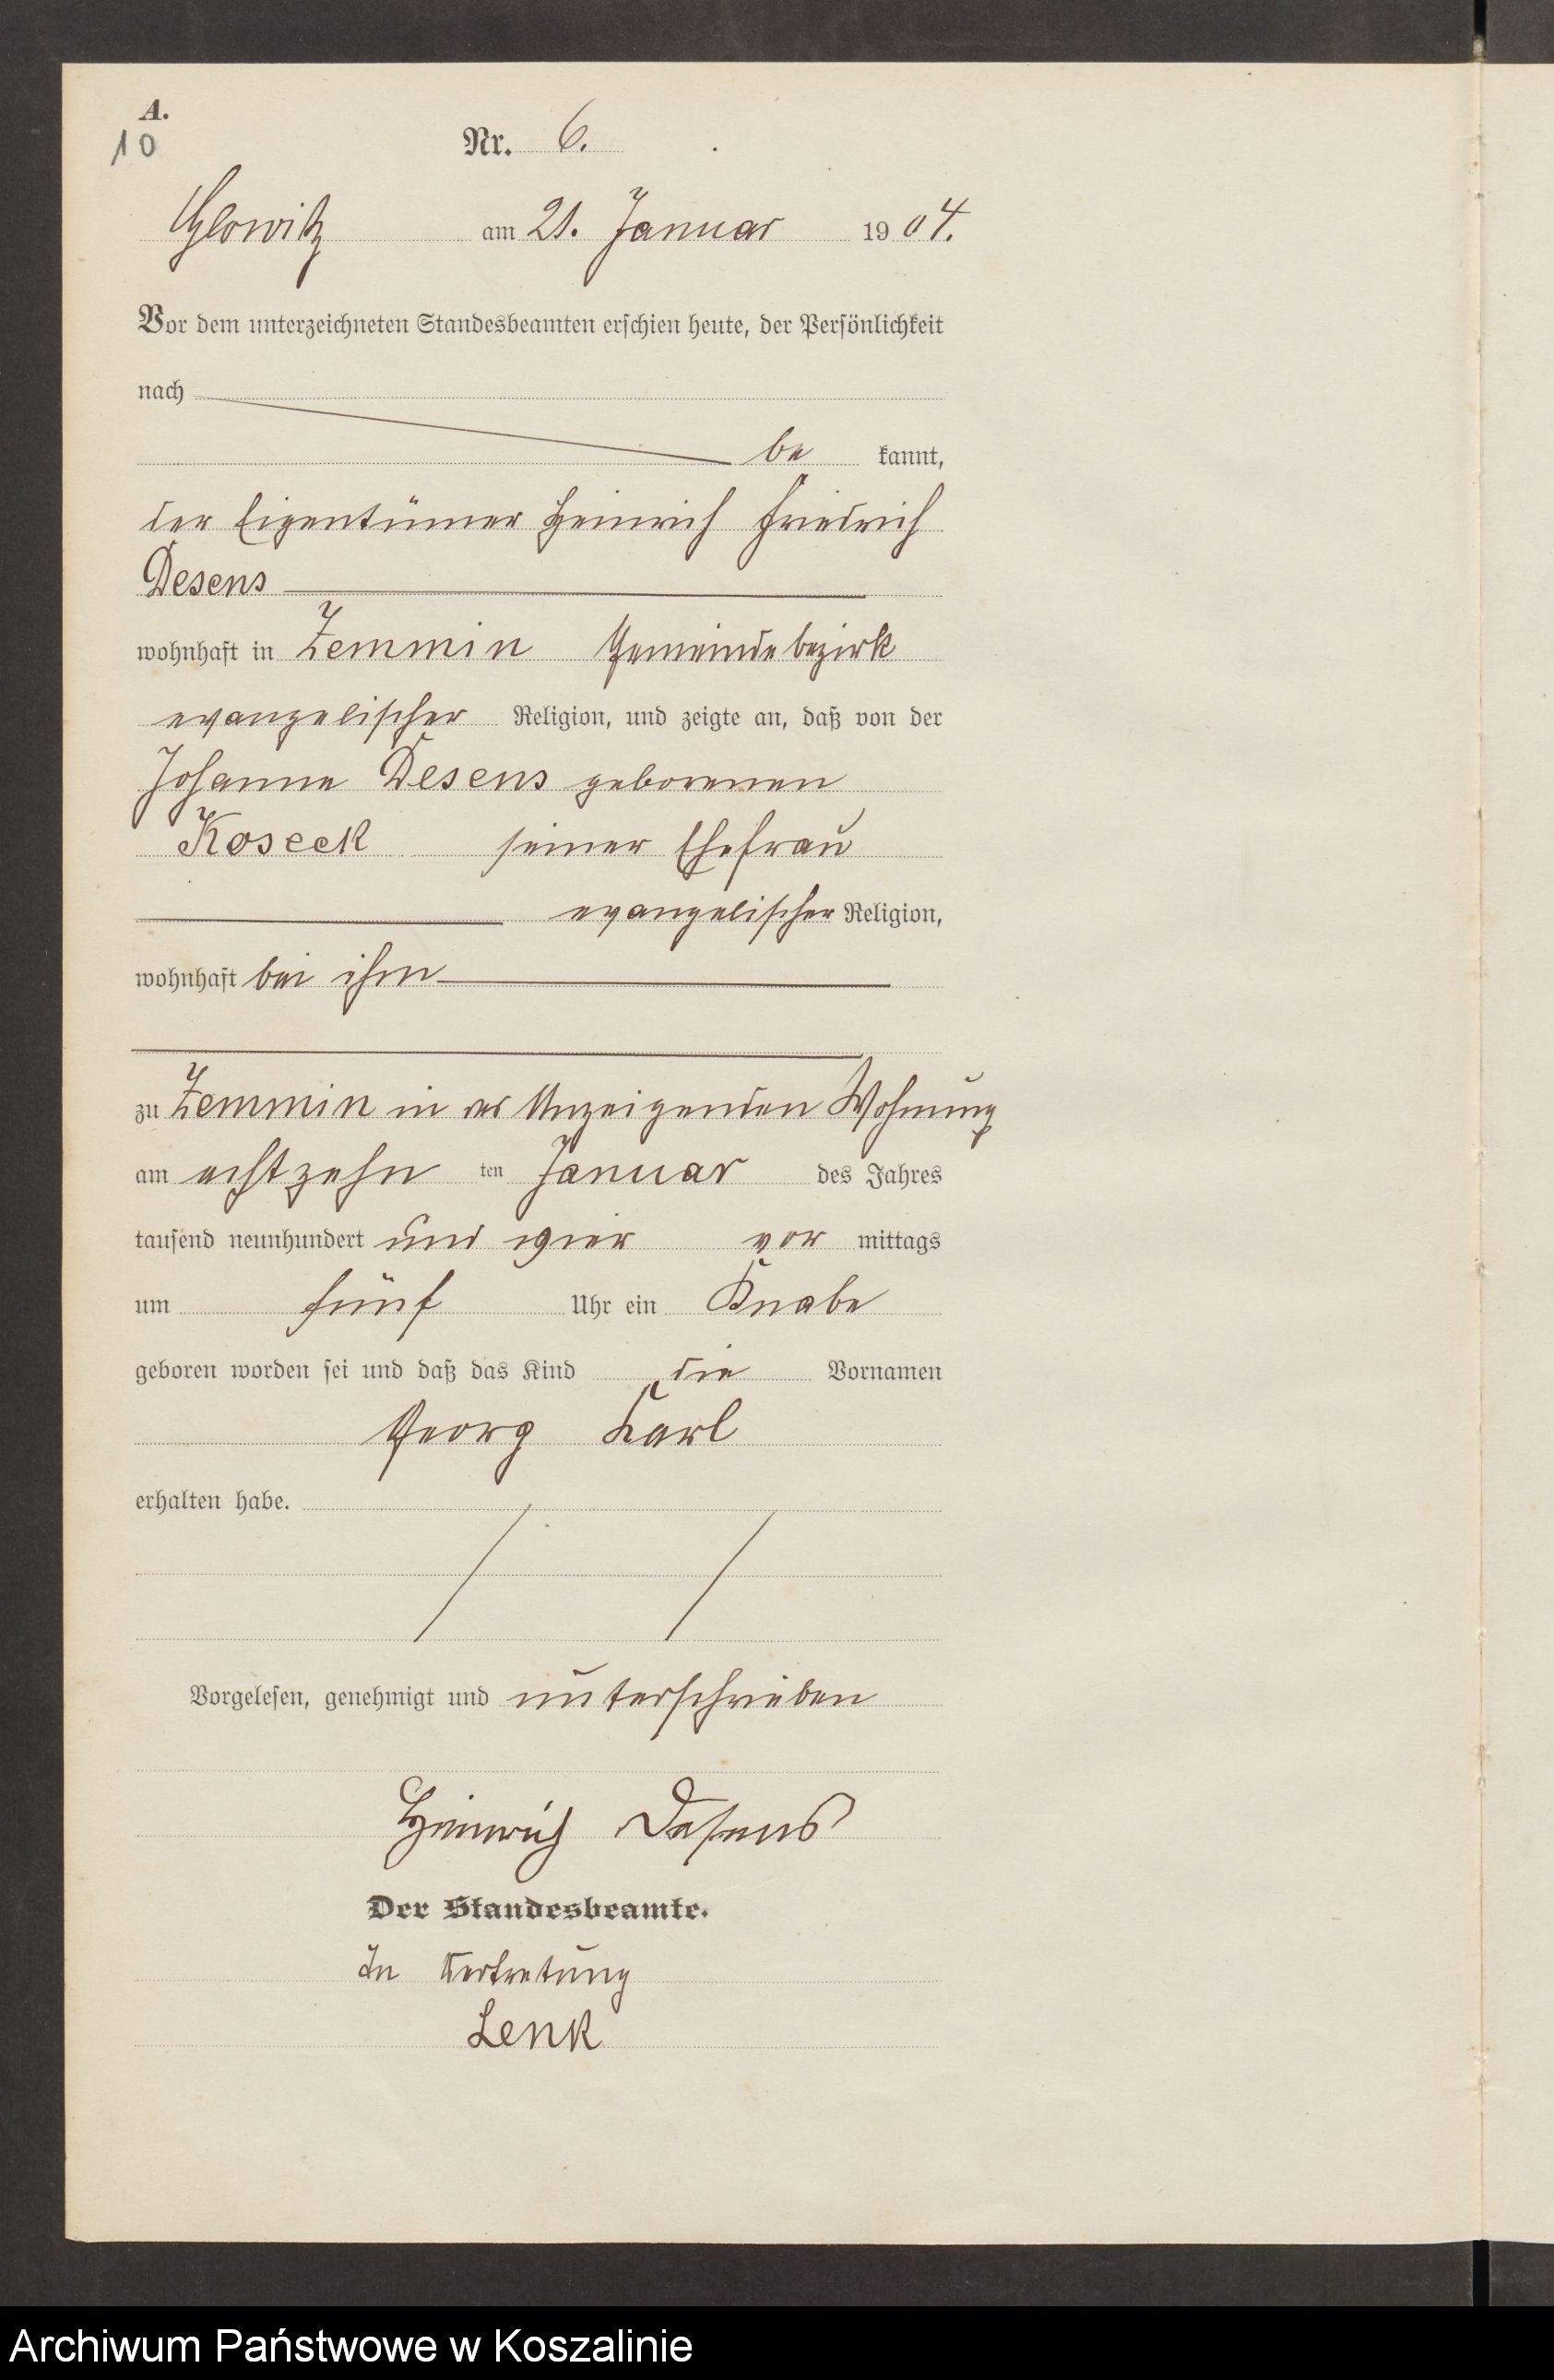 A.
10
Nr. 6.
Glowitz am 21. Januar 1904.
Vor dem unterzeichneten Standesbeamten erschien heute, der Persönlichkeit
nach
be kannt,
der Eigentümer Heinrich Friedrich
Desens
wohnhaft in Zemmin Gemeindebezirk
evangelischer Religion, und zeigte an, daß von der
Johanna Desens geborenen
Koseck seiner Ehefrau
evangelischer Religion,
wohnhaft bei ihm
zu Zemmin in des Anzeigenden Wohnung
am achtzehn ten Januar des Jahres
tausend neunhundert und vier vor mittags
um fünf Uhr ein Knabe
geboren worden sei und daß das Kind die Vornamen
Georg Karl
erhalten habe.
Vorgelesen, genehmigt und unterschrieben
Heinrich Desens
Der Standesbeamte.
In Vertretung
Lenk
Archiwum Państwowe w Koszalinie